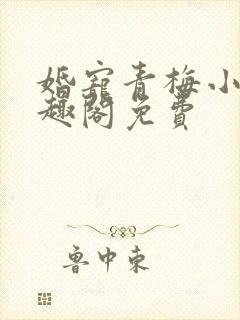 婚宠青梅小
趣阁免费
鲁中东